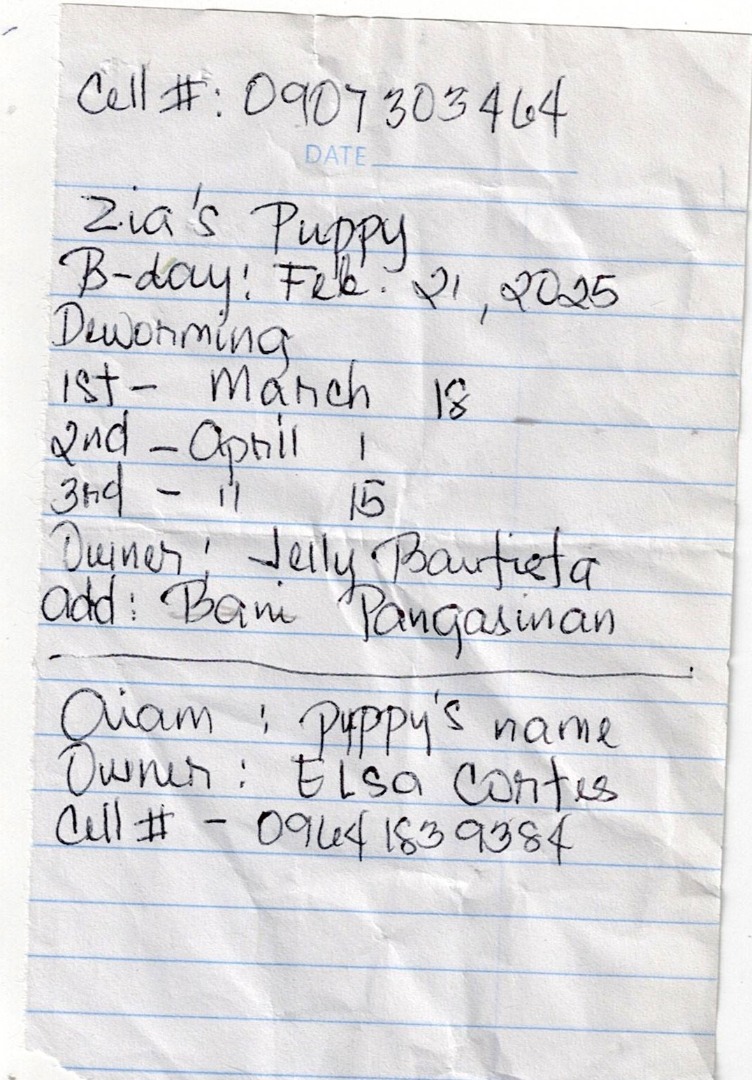 Cell #: 0907 303 464
DATE
Zia's Puppy
B-day: Feb. 21, 2025
Deworming
1st - March 18
2nd - April 1
3rd - " 15
Owner: Jelly Bautista
add: Bani Pangasinan
: Puppy's name
Owner: Elsa Cortes
Cell # - 0964 183 9384